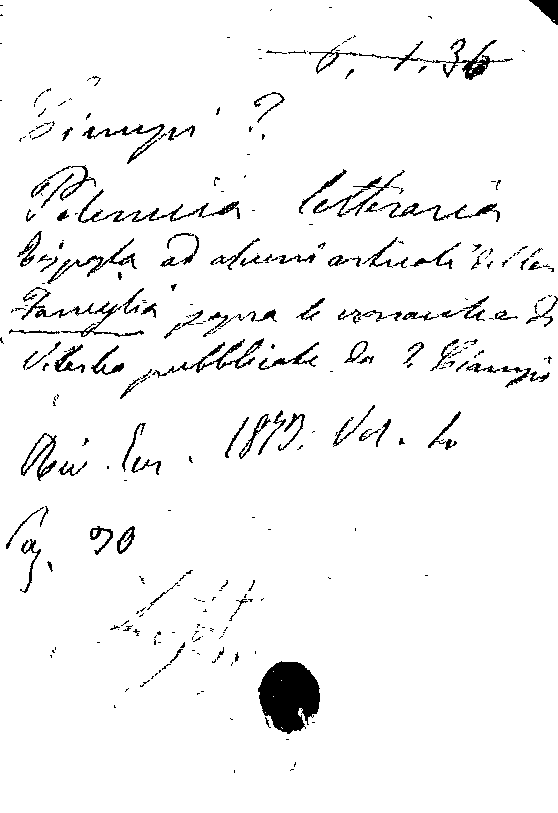 6. 1. 36
Ciampi ?
Polemica letteraria
Risposta ad alcuni articoli della
Famiglia sopra le cronache di
Viterbo pubblicate da I. Ciampi
Riv. Eur. 1873. Vol.
Pag. 90